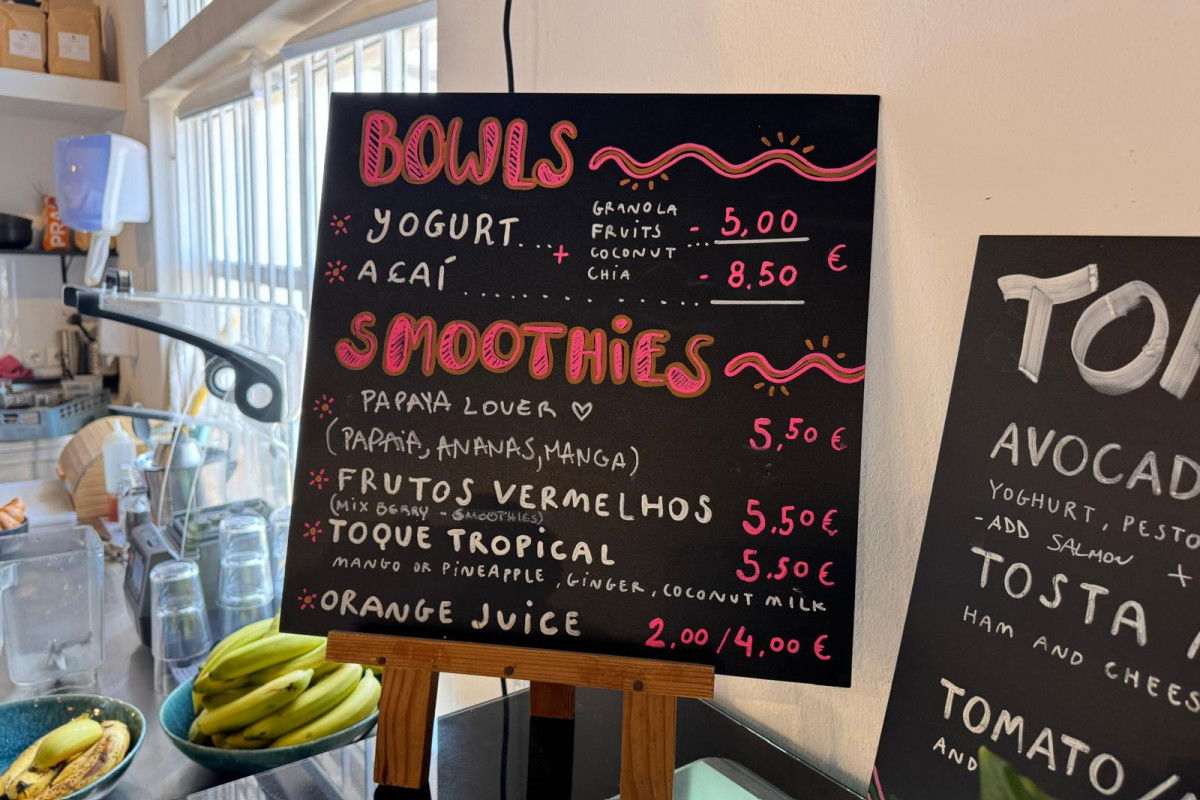 BOWLS
YOGURT... + GRANOLA
FRUITS
COCONUT
CHIA
- 5,00
AÇAÍ ........... - 8,50
€
SMOOTHIES
PAPAYA LOVER ♡
(PAPAIA, ANANAS, MANGA) 5,50 €
FRUTOS VERMELHOS
(MIX BERRY - SMOOTHIES) 5.50 €
TOQUE TROPICAL 5.50 €
MANGO OR PINEAPPLE, GINGER, COCONUT MILK
ORANGE JUICE 2,00 / 4,00 €
AVOCAD
YOGHURT, PESTO
- ADD SALMON +
TOSTA
HAM AND CHEES
TOMATO /
AND